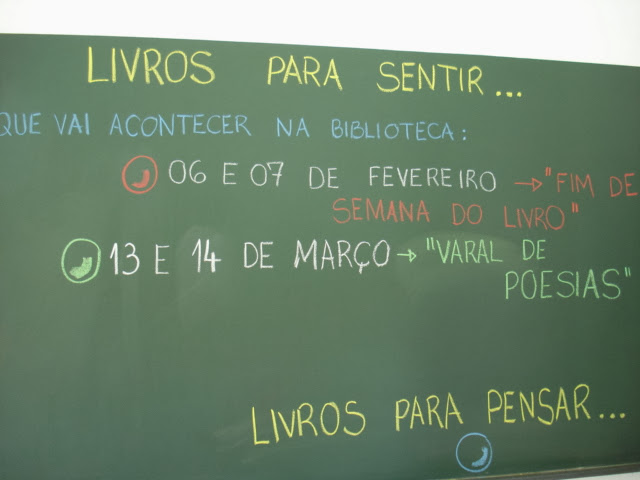 LIVROS PARA SENTIR...
QUE VAI ACONTECER NA BIBLIOTECA:
06 E 07 DE FEVEREIRO → "FIM DE
SEMANA DO LIVRO"
13 E 14 DE MARÇO → "VARAL DE
POESIAS"
LIVROS PARA PENSAR...